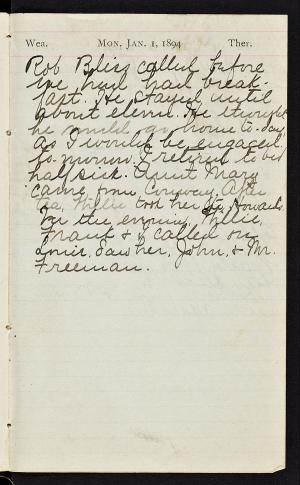 Wea. MON. JAN. 1, 1894 Ther.
Rob Bliss called before
we had had break-
fast. He stayed until
about eleven. He thought
he would go home to-day
as I would be engaged
to-morrow. I retired to bed
half sick. Aunt Mary
came from Conway. After
tea, Willie took her to Howards.
In the evening, Willie,
& I called on
Saw her, John, & Mr.
Freeman.